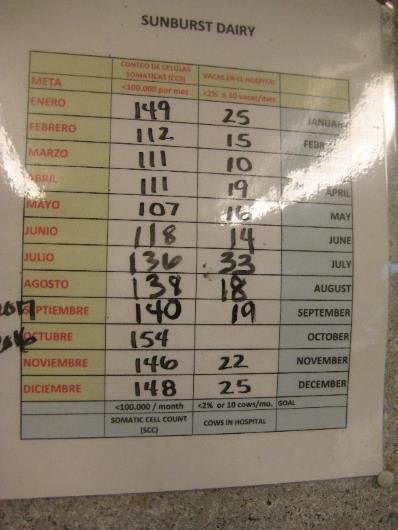 SUNBURST DAIRY
CONTEO DE CELULAS SOMATICAS (CCS) VACAS EN EL HOSPITAL
META <100.000 por mes <2% o 10 vacas/mes
ENERO 149 25 JANUARY
FEBRERO 112 15
MARZO 111 10
ABRIL 111 19 APRIL
MAYO 107 16 MAY
JUNIO 118 14 JUNE
JULIO 136 33 JULY
AGOSTO 138 18 AUGUST
SEPTIEMBRE 140 19 SEPTEMBER
OCTUBRE 154 OCTOBER
NOVIEMBRE 146 22 NOVEMBER
DICIEMBRE 148 25 DECEMBER
<100.000 / month <2% or 10 cows/mo. GOAL
SOMATIC CELL COUNT (SCC) COWS IN HOSPITAL